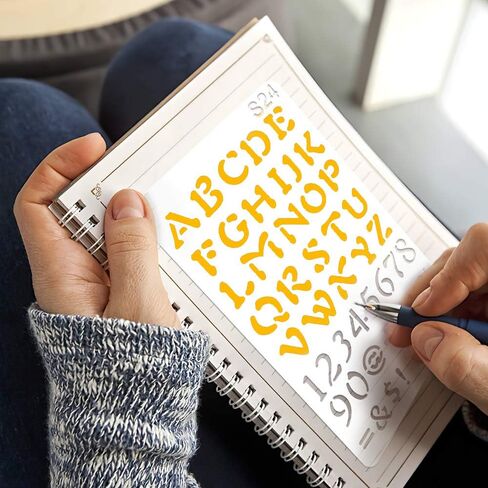 S24
ABCDE
FGHIJK
LMNOP
QRSTU
VWXYZ
12345678
90@
=&$!